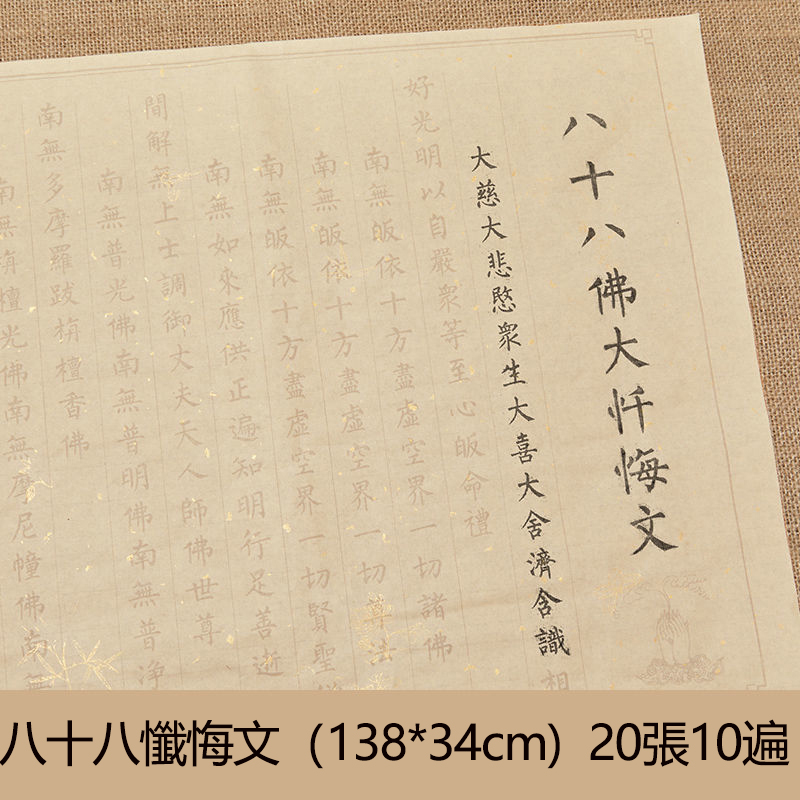 八十八佛大忏悔文
大慈大悲愍衆生大喜大舍濟含識相
好光明以自嚴衆等至心皈命禮
南無皈依十方盡虛空界一切諸佛
南無皈依十方盡虛空界一切尊法
南無皈依十方盡虛空界一切賢聖僧
南無如來應供正遍知明行足善逝
間解無上士調御丈夫天人師佛世尊
南無普光佛南無普明佛南無普净
南無多摩羅跋栴檀香佛
南無栴檀光佛南無摩尼幢佛南無
八十八懺悔文（138*34cm）20張10遍